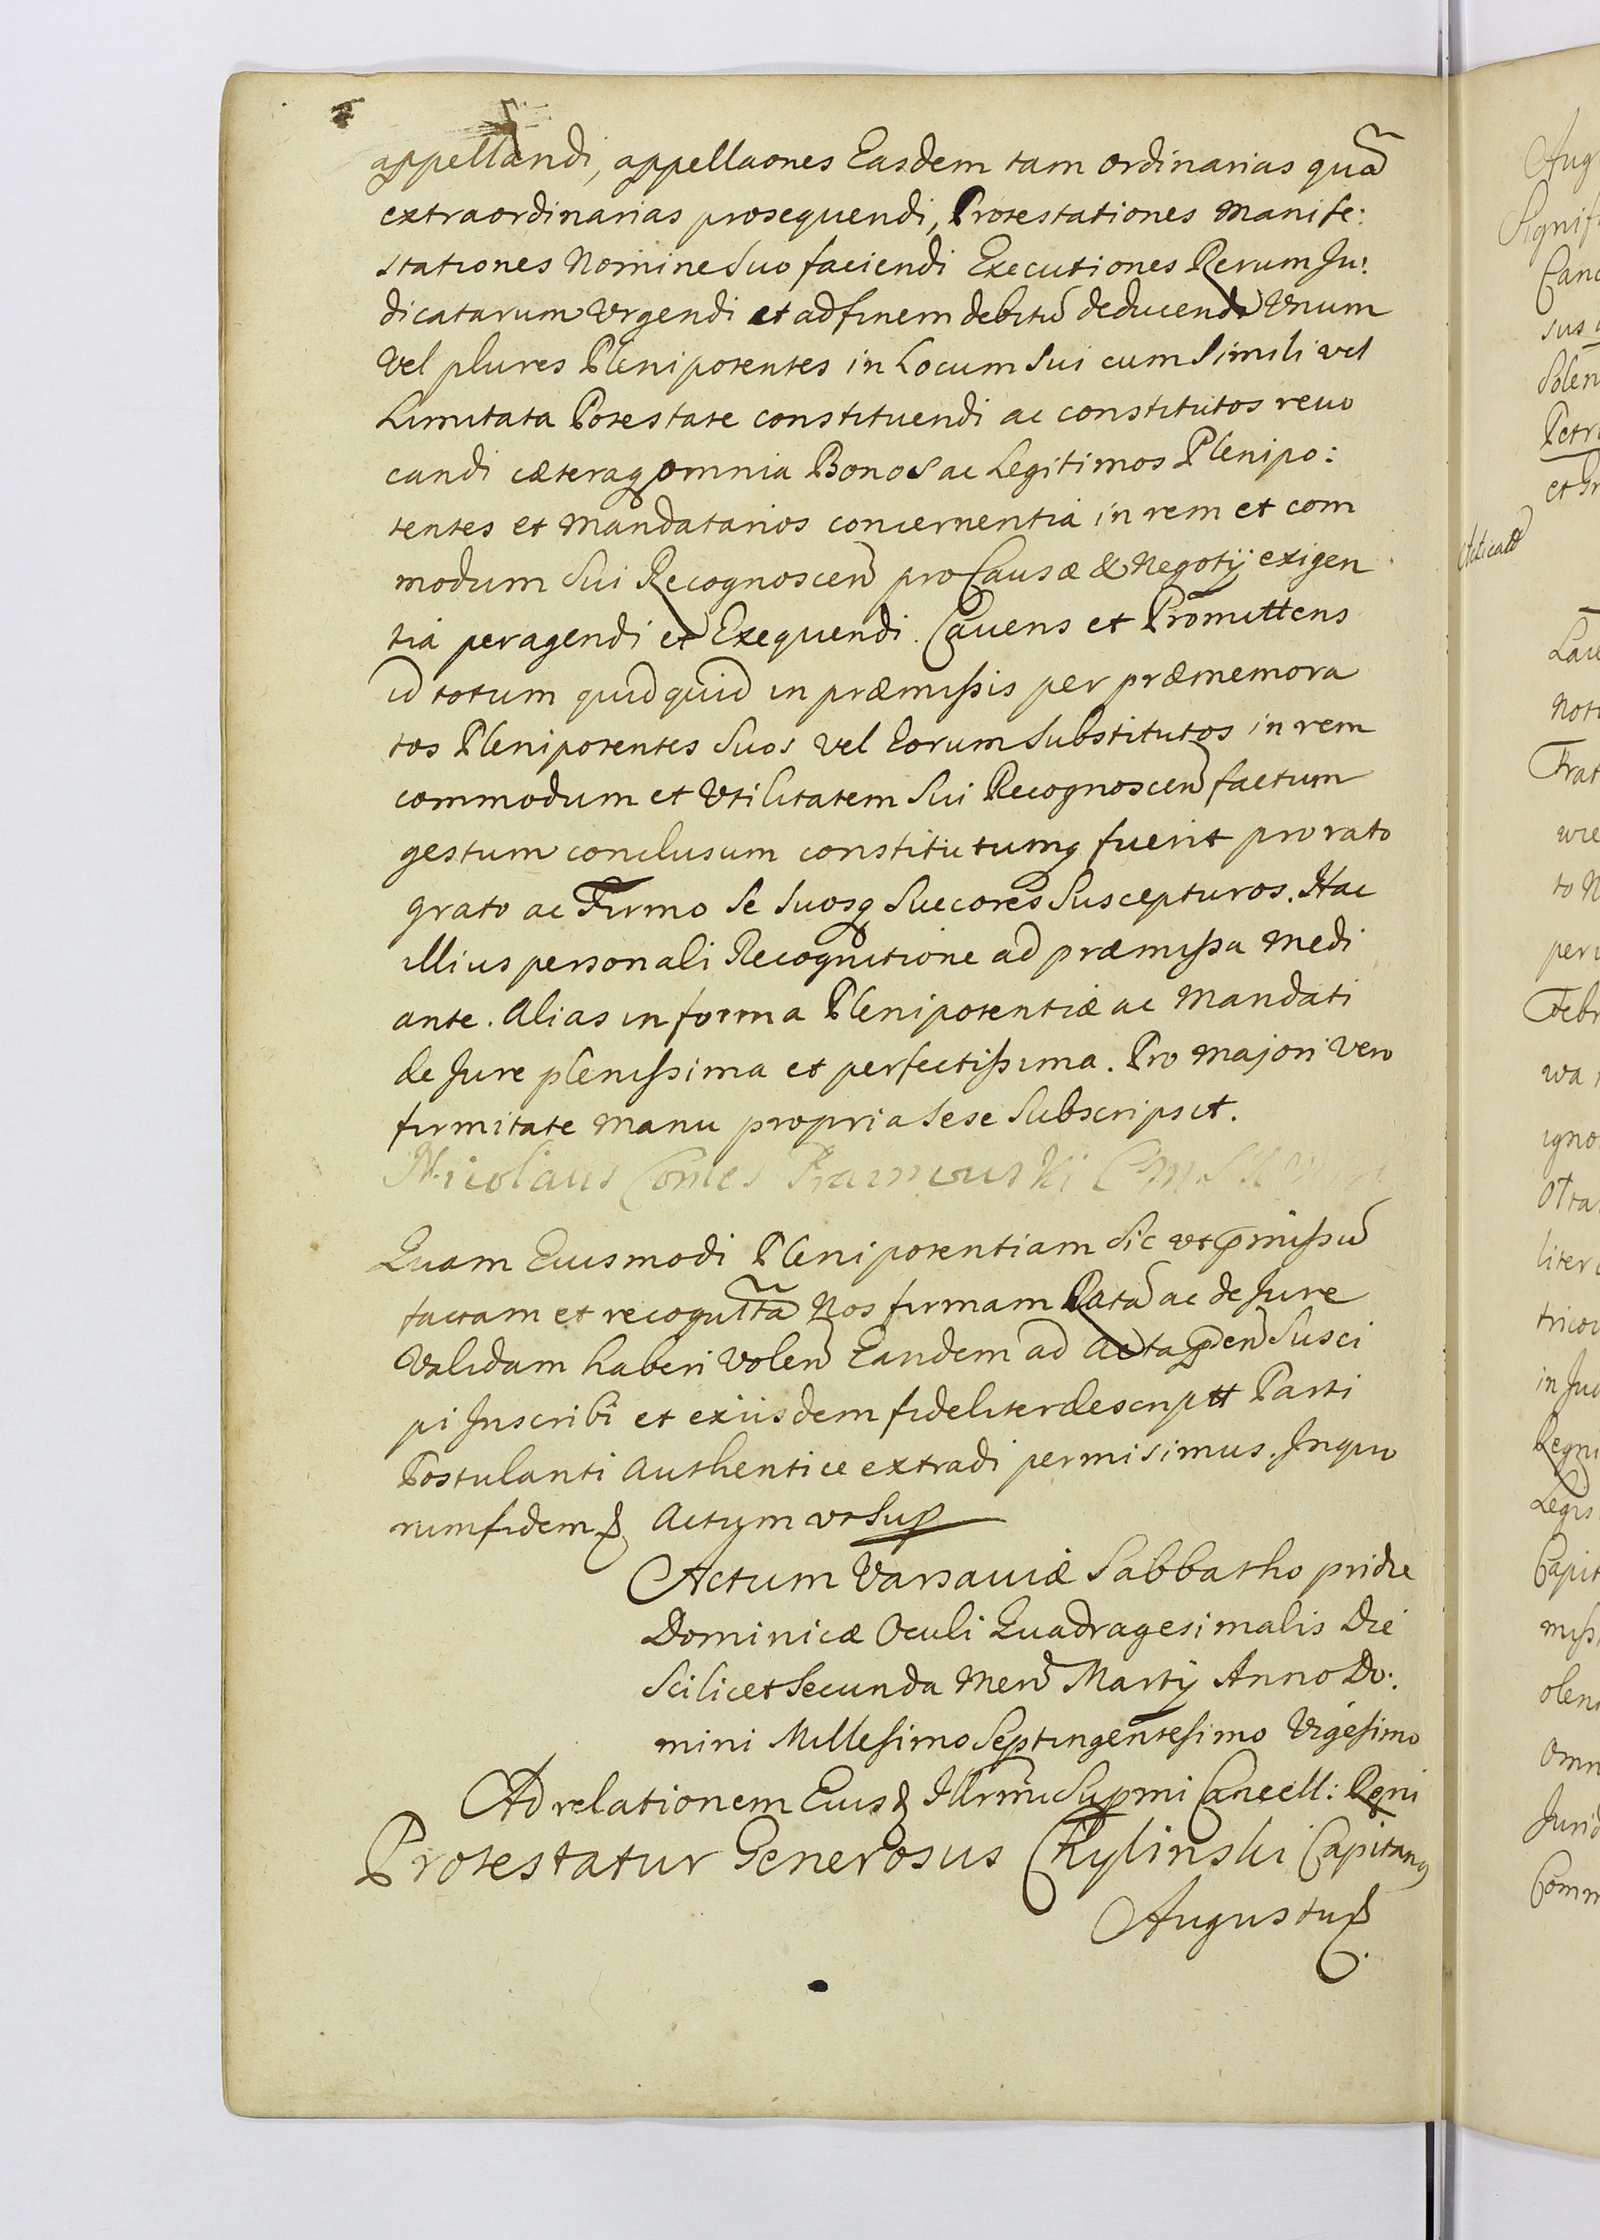 appellandi, appellaones Easdem tam ordinarias quã
extraordinarias prosequendi, Protestationes Manife:
stationes Nomine Suo faciendi Executiones Rerum Ju:
dicatarum Urgendi et ad finem debitũ deducendi Unum
Vel plures Plenipotentes in Locum Sui cum Simili vel
Limitata Potestate constituendi ac constitutos revo
candi cæteraq omnia Bonos ac Legitimos Plenipo:
tentes et Mandatarios concernentia in rem et com
modum Sui Recognoscen pro Causæ & Negotij exigen
tia peragendi et Exequendi. Cavens et Promittens
id totum quidquid in præmissis per præmemora
tos Plenipotentes Suos vel Eorum Substitutos in rem
commodum et Utilitatem Sui Recognoscen factum
gestum conclusum constitutumq fuerit pro rato
grato ac Firmo Se Suosq Succores Suscepturos. Hac
illius personali Recognitione ad præmissa Medi
ante. Alias in forma Plenipotentiæ ac Mandati
de Jure plenissima et perfectissima. Pro majori Vero
firmitate Manu propria sese Subscripsit.
Nicolaus Comes
Quam Eiusmodi Plenipotentiam Sic ut pmissũ
factam et recognittã Nos firmam Ratã ac de Jure
Validam haberi Volen Eandem ad Acta pñ Susci
pi Inscribi et exiisdem fideliter descriptt Parti
Postulanti Authentice extradi permisimus. In quo
rum fidem & Actum ut Sup
Actum Varsaviæ Sabbatho pridie
Dominicæ Oculi Quadragesimalis Die
Scilicet Secunda Men Martij Anno Do:
mini Millesimo Septingentesimo Vigesimo
Ad relationem Eius& Illrmi Supmi Cancell: Regni
Protestatur Generosus Chylinski Capitang
Augustus
Aug
Signif
Canc
sus
Solen
Petr
et Gr
Lau
Not
Frat
wie
to N
per
Febr
wa
igno
Otta
liter
tricor
in Jud
Regni
Legis
Capit
miss
olen
omn
Jurid
Comm